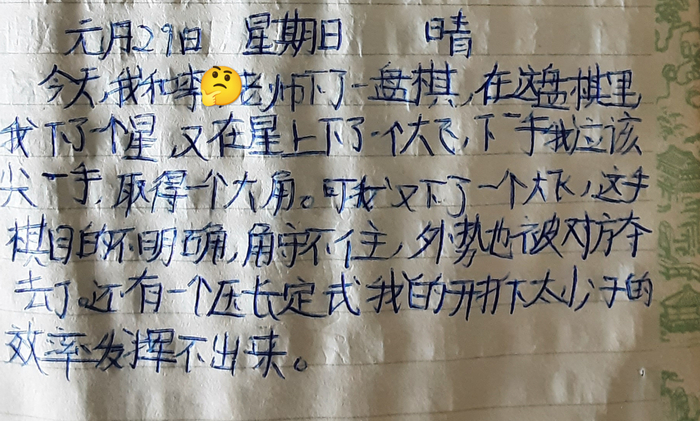 元月29日 星期日 晴
今天,我和李老师下了一盘棋,在这盘棋里,
我下了个星,又在星上下了个大飞,下一手我应该
尖一手,取得一个大角。可我又下了一个大飞,这手
棋目的不明确,角守不住,外势也被对方夺
去了。还有一个压长定式我的开拆太小子的
效率发挥不出来。